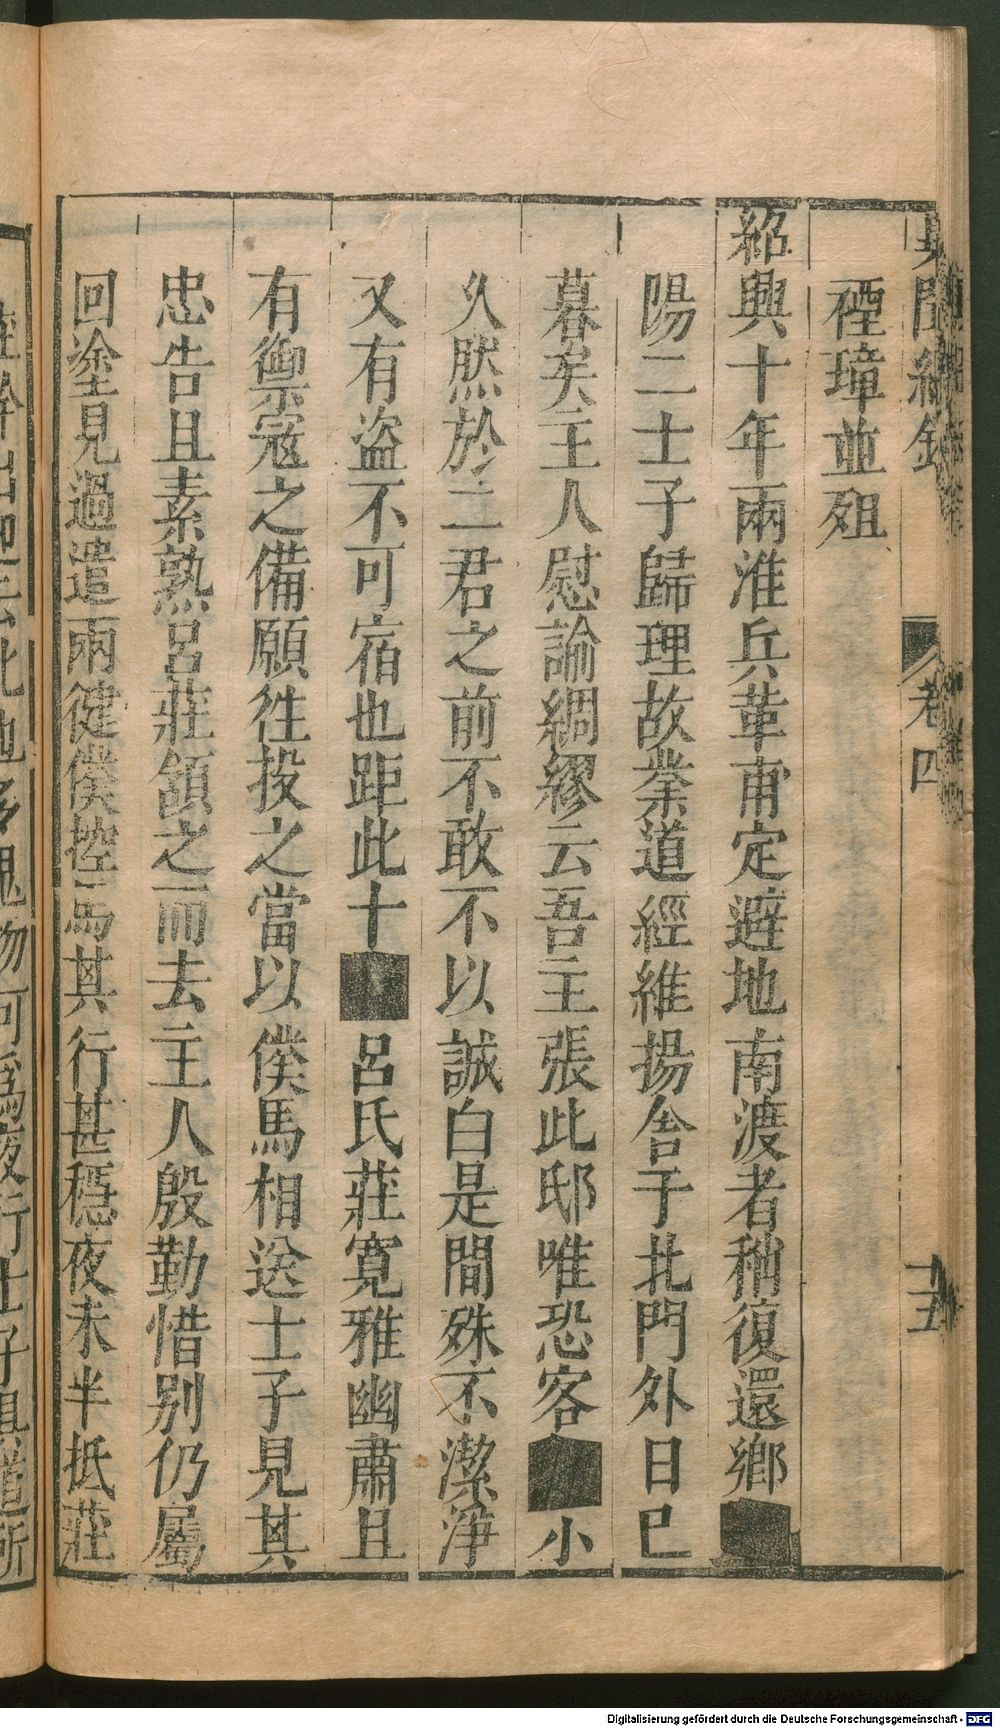 異聞總錄
卷四
十五
禋璋並殂
紹興十年兩淮兵革甫定避地南渡者稍復還鄉
陽二士子歸理故業道經維揚舍于北門外日已
暮矣主人慰諭綢繆云吾主張此邸唯恐客小
久然於二君之前不敢不以誠白是間殊不潔淨
又有盜不可宿也距此十呂氏莊寬雅幽肅且
有禦寇之備願徃投之當以僕馬相送士子見其
忠告且素熟呂莊頷之而去主人殷勤惜别仍屬
回塗見過遣兩健僕控馬其行甚穩夜未半抵莊
出迎云此地多鬼物何爲夜行士子具道所
Digitalisierung gefördert durch die Deutsche Forschungsgemeinschaft - DFG